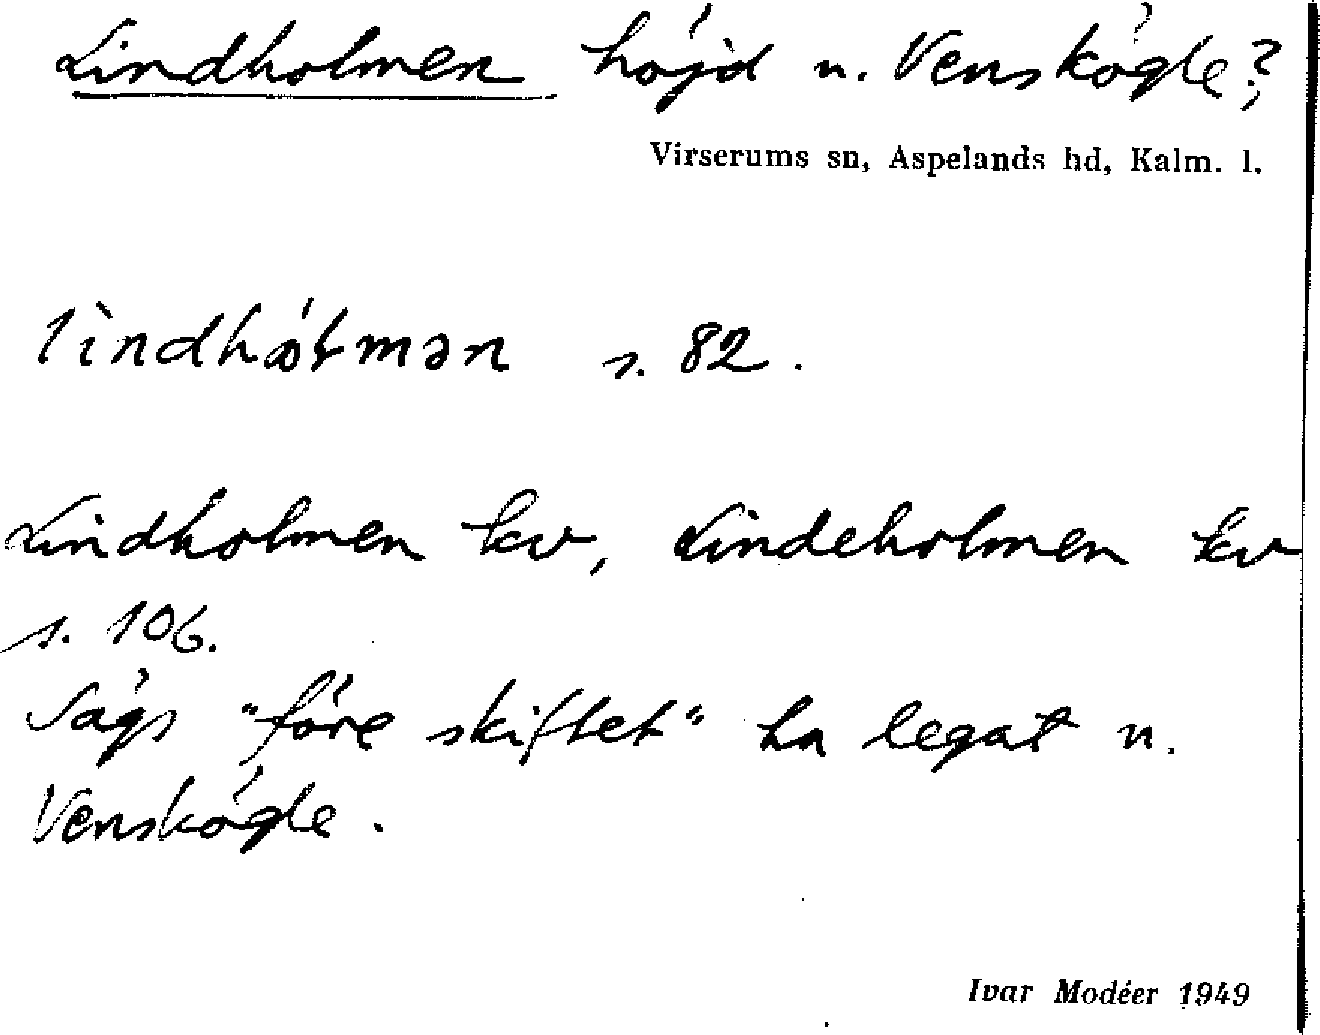 Lindholmen höjd n. Venskögle?
Virserums sn, Aspelands hd, Kalm. l.
s. 82.
Lindholmen kv, Lindeholmen kv
s. 106.
Sägs "före skiftet" ha legat n.
Venskögle.
Ivar Modéer 1949